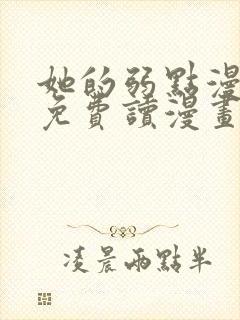 她的弱點漫
免費讀漫畫
凌晨兩點半